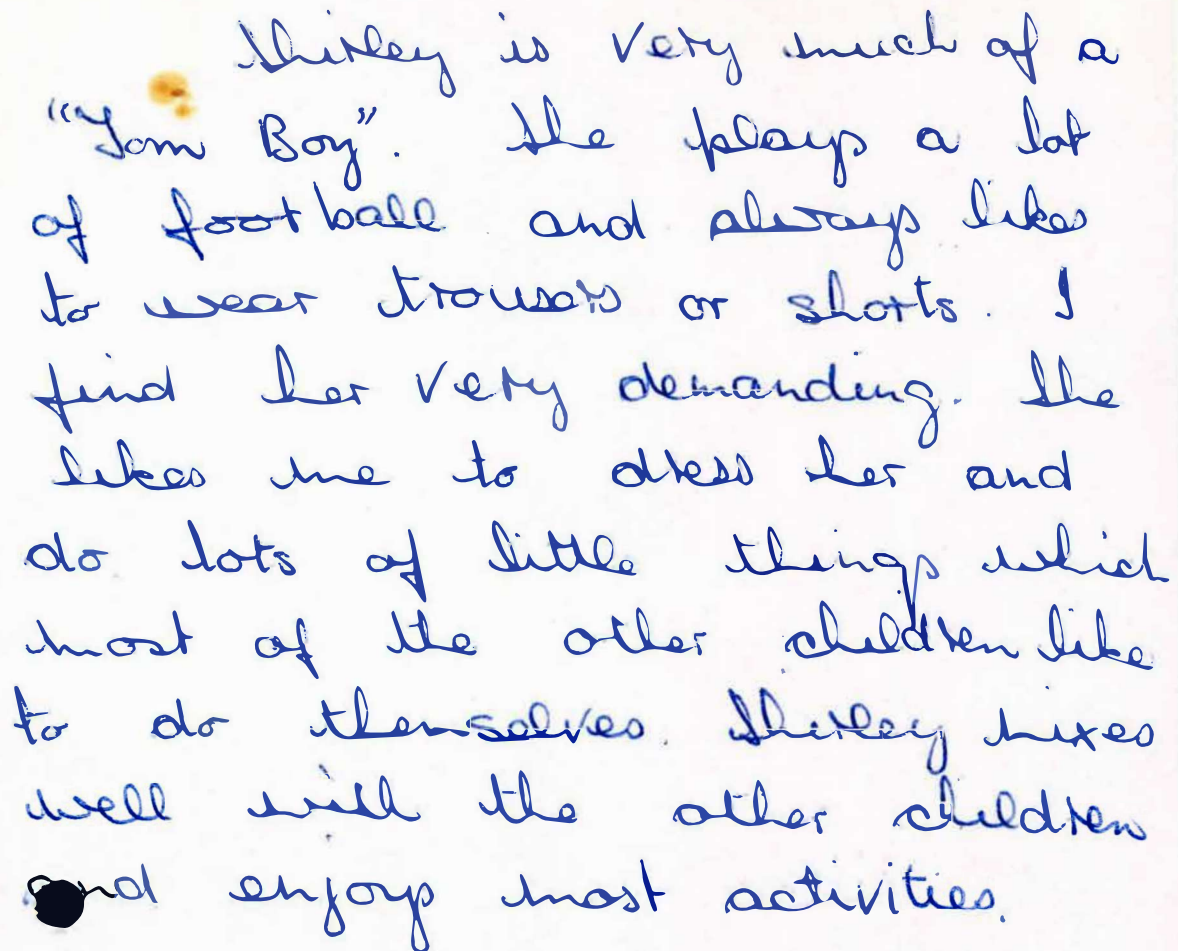 Shirley is very much of a
"Tom Boy". She plays a lot
of football and always likes
to wear trousers or shorts. I
find her very demanding. She
likes me to dress her and
do lots of little things which
most of the other children like
to do themselves. Shirley mixes
well with the other children
and enjoys most activities.